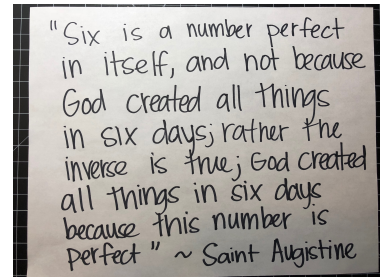 "Six is a number perfect
in itself, and not because
God created all things
in six days; rather the
inverse is true; God created
all things in six days
because this number is
perfect" ~ Saint Augistine